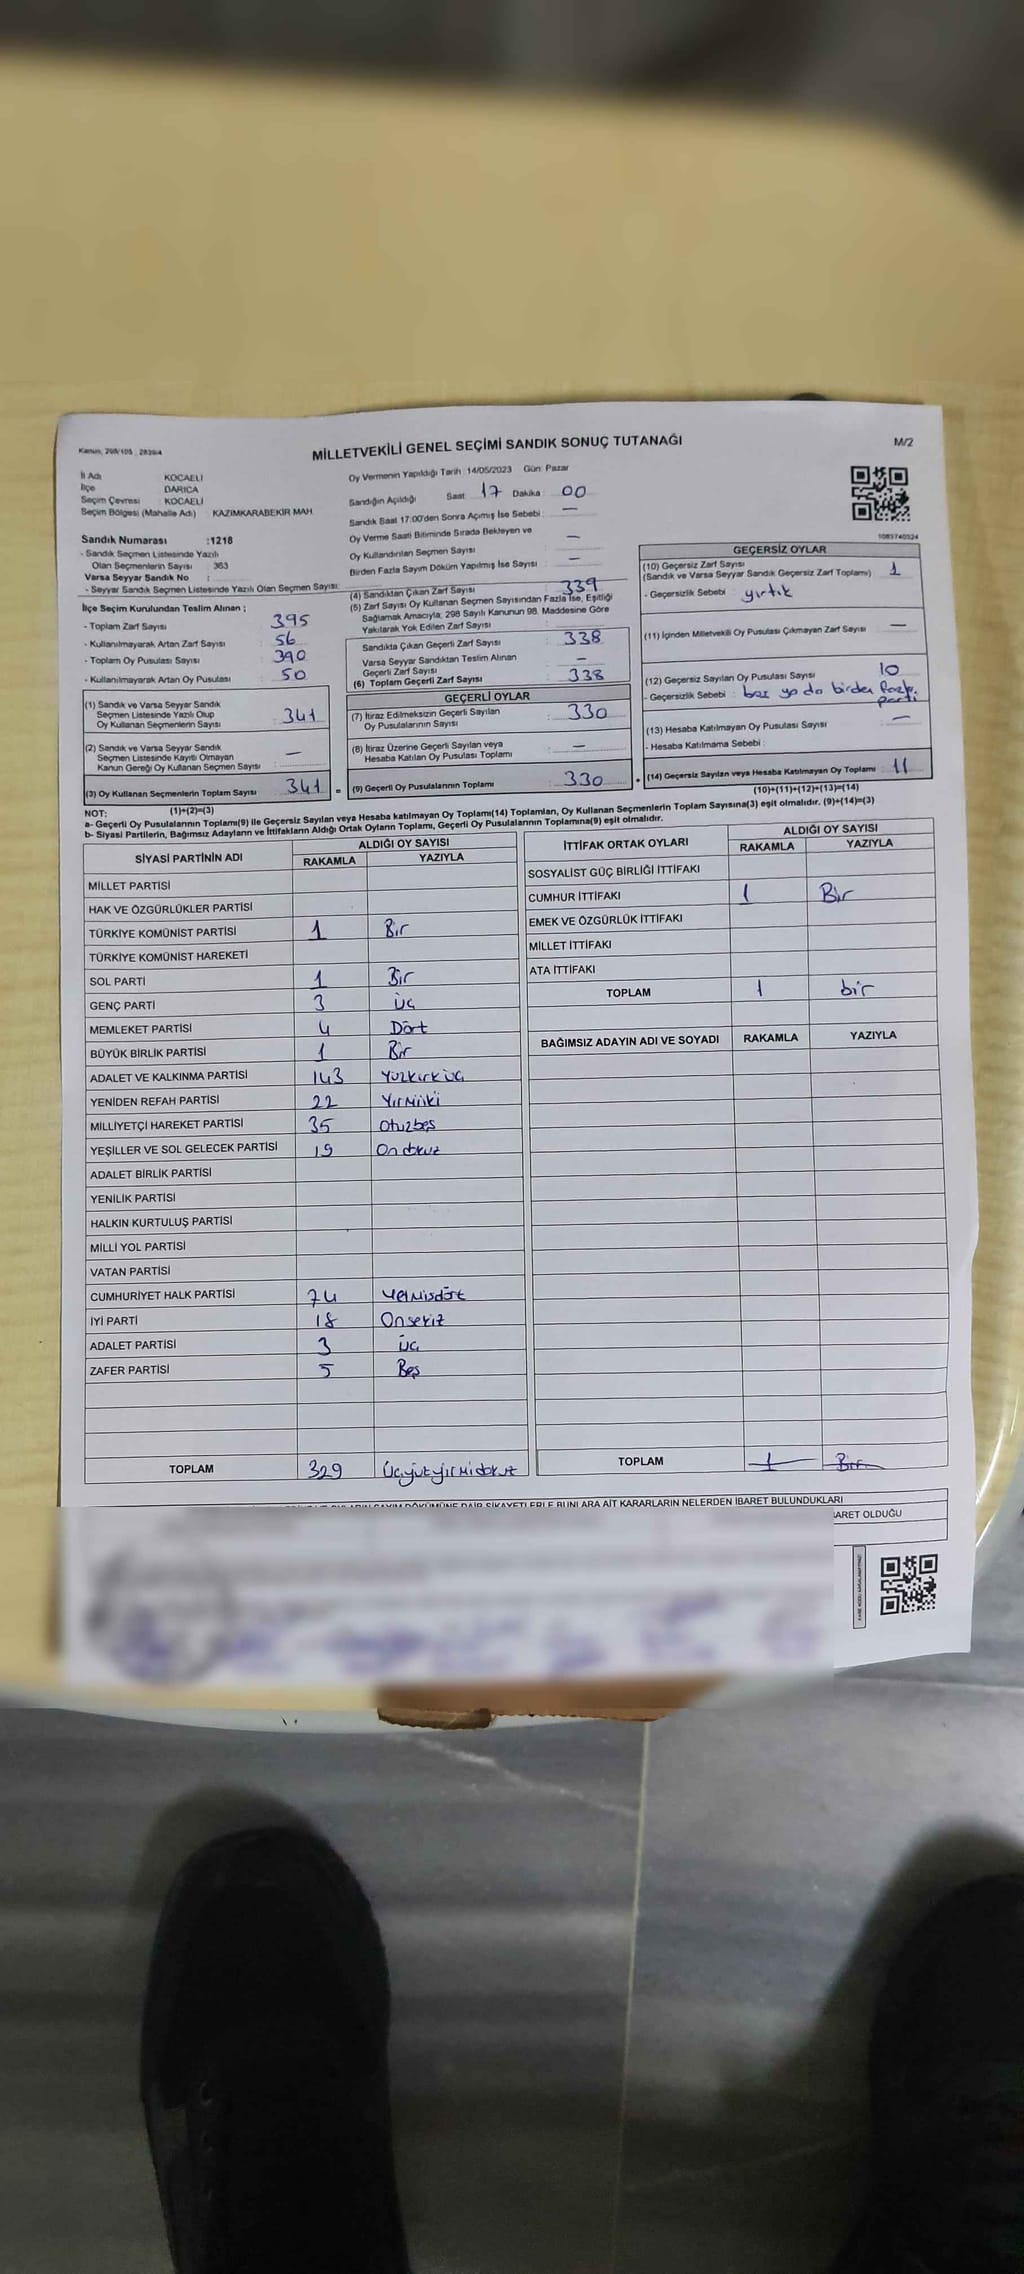 Kanun, 298/105 , 2839/4
MİLLETVEKİLİ GENEL SEÇİMİ SANDIK SONUÇ TUTANAĞI
M/2
İl Adı KOCAELİ
İlçe DARICA
Seçim Çevresi : KOCAELİ
Seçim Bölgesi (Mahalle Adı) KAZIMKARABEKİR MAH.
Sandık Numarası :1218
- Sandık Seçmen Listesinde Yazılı
Olan Seçmenlerin Sayısı : 363
Varsa Seyyar Sandık No :
- Seyyar Sandık Seçmen Listesinde Yazılı Olan Seçmen Sayısı:
Oy Vermenin Yapıldığı Tarih :14/05/2023 Gün: Pazar
Sandığın Açıldığı Saat : 17 Dakika : 00
Sandık Saat 17:00'den Sonra Açımış İse Sebebi : —
Oy Verme Saati Bitiminde Sırada Bekleyen ve
Oy Kullandırılan Seçmen Sayısı : —
Birden Fazla Sayım Döküm Yapılmış İse Sayısı : —
1083740524
İlçe Seçim Kurulundan Teslim Alınan ;
- Toplam Zarf Sayısı : 395
- Kullanılmayarak Artan Zarf Sayısı : 56
- Toplam Oy Pusulası Sayısı : 390
- Kullanılmayarak Artan Oy Pusulası : 50
(1) Sandık ve Varsa Seyyar Sandık
Seçmen Listesinde Yazılı Olup
Oy Kullanan Seçmenlerin Sayısı : 341
(2) Sandık ve Varsa Seyyar Sandık
Seçmen Listesinde Kayıtlı Olmayan
Kanun Gereği Oy Kullanan Seçmen Sayısı : —
(3) Oy Kullanan Seçmenlerin Toplam Sayısı : 341 =
(4) Sandıktan Çıkan Zarf Sayısı : 339
(5) Zarf Sayısı Oy Kullanan Seçmen Sayısından Fazla İse, Eşitliği
Sağlamak Amacıyla, 298 Sayılı Kanunun 98. Maddesine Göre
Yakılarak Yok Edilen Zarf Sayısı :
Sandıkta Çıkan Geçerli Zarf Sayısı : 338
Varsa Seyyar Sandıktan Teslim Alınan
Geçerli Zarf Sayısı : —
(6) Toplam Geçerli Zarf Sayısı : 338
GEÇERLİ OYLAR
(7) İtiraz Edilmeksizin Geçerli Sayılan
Oy Pusulalarının Sayısı : 330
(8) İtiraz Üzerine Geçerli Sayılan veya
Hesaba Katılan Oy Pusulası Toplamı : —
(9) Geçerli Oy Pusulalarının Toplamı : 330 +
GEÇERSİZ OYLAR
(10) Geçersiz Zarf Sayısı
(Sandık ve Varsa Seyyar Sandık Geçersiz Zarf Toplamı) : 1
- Geçersizlik Sebebi : yırtık
(11) İçinden Milletvekili Oy Pusulası Çıkmayan Zarf Sayısı : —
(12) Geçersiz Sayılan Oy Pusulası Sayısı : 10
- Geçersizlik Sebebi : boş ya da birden fazla
parti
(13) Hesaba Katılmayan Oy Pusulası Sayısı : —
- Hesaba Katılmama Sebebi :
(14) Geçersiz Sayılan veya Hesaba Katılmayan Oy Toplamı : 11
(10)+(11)+(12)+(13)=(14)
NOT: (1)+(2)=(3)
a- Geçerli Oy Pusulalarının Toplamı(9) ile Geçersiz Sayılan veya Hesaba katılmayan Oy Toplamı(14) Toplamları, Oy Kullanan Seçmenlerin Toplam Sayısına(3) eşit olmalıdır. (9)+(14)=(3)
b- Siyasi Partilerin, Bağımsız Adayların ve İttifakların Aldığı Ortak Oyların Toplamı, Geçerli Oy Pusulalarının Toplamına(9) eşit olmalıdır.
SİYASİ PARTİNİN ADI ALDIĞI OY SAYISI
RAKAMLA YAZIYLA
MİLLET PARTİSİ
HAK VE ÖZGÜRLÜKLER PARTİSİ
TÜRKİYE KOMÜNİST PARTİSİ 1 Bir
TÜRKİYE KOMÜNİST HAREKETİ
SOL PARTİ 1 Bir
GENÇ PARTİ 3 üç
MEMLEKET PARTİSİ 4 Dört
BÜYÜK BİRLİK PARTİSİ 1 Bir
ADALET VE KALKINMA PARTİSİ 143 yüzkırküç
YENİDEN REFAH PARTİSİ 22 Yirmiiki
MİLLİYETÇİ HAREKET PARTİSİ 35 Otuzbeş
YEŞİLLER VE SOL GELECEK PARTİSİ 19 Ondokuz
ADALET BİRLİK PARTİSİ
YENİLİK PARTİSİ
HALKIN KURTULUŞ PARTİSİ
MİLLİ YOL PARTİSİ
VATAN PARTİSİ
CUMHURİYET HALK PARTİSİ 74 yetmişdört
İYİ PARTİ 18 Onsekiz
ADALET PARTİSİ 3 üç
ZAFER PARTİSİ 5 Beş
TOPLAM 329 üçyüzyirmidokuz
İTTİFAK ORTAK OYLARI ALDIĞI OY SAYISI
RAKAMLA YAZIYLA
SOSYALİST GÜÇ BİRLİĞİ İTTİFAKI
CUMHUR İTTİFAKI 1 Bir
EMEK VE ÖZGÜRLÜK İTTİFAKI
MİLLET İTTİFAKI
ATA İTTİFAKI
TOPLAM 1 bir
BAĞIMSIZ ADAYIN ADI VE SOYADI RAKAMLA YAZIYLA
TOPLAM 1 Bir
DÖKÜMÜNE DAİR ŞİKAYETLERLE BUNLARA AİT KARARLARIN NELERDEN İBARET BULUNDUKLARI
OLDUĞU